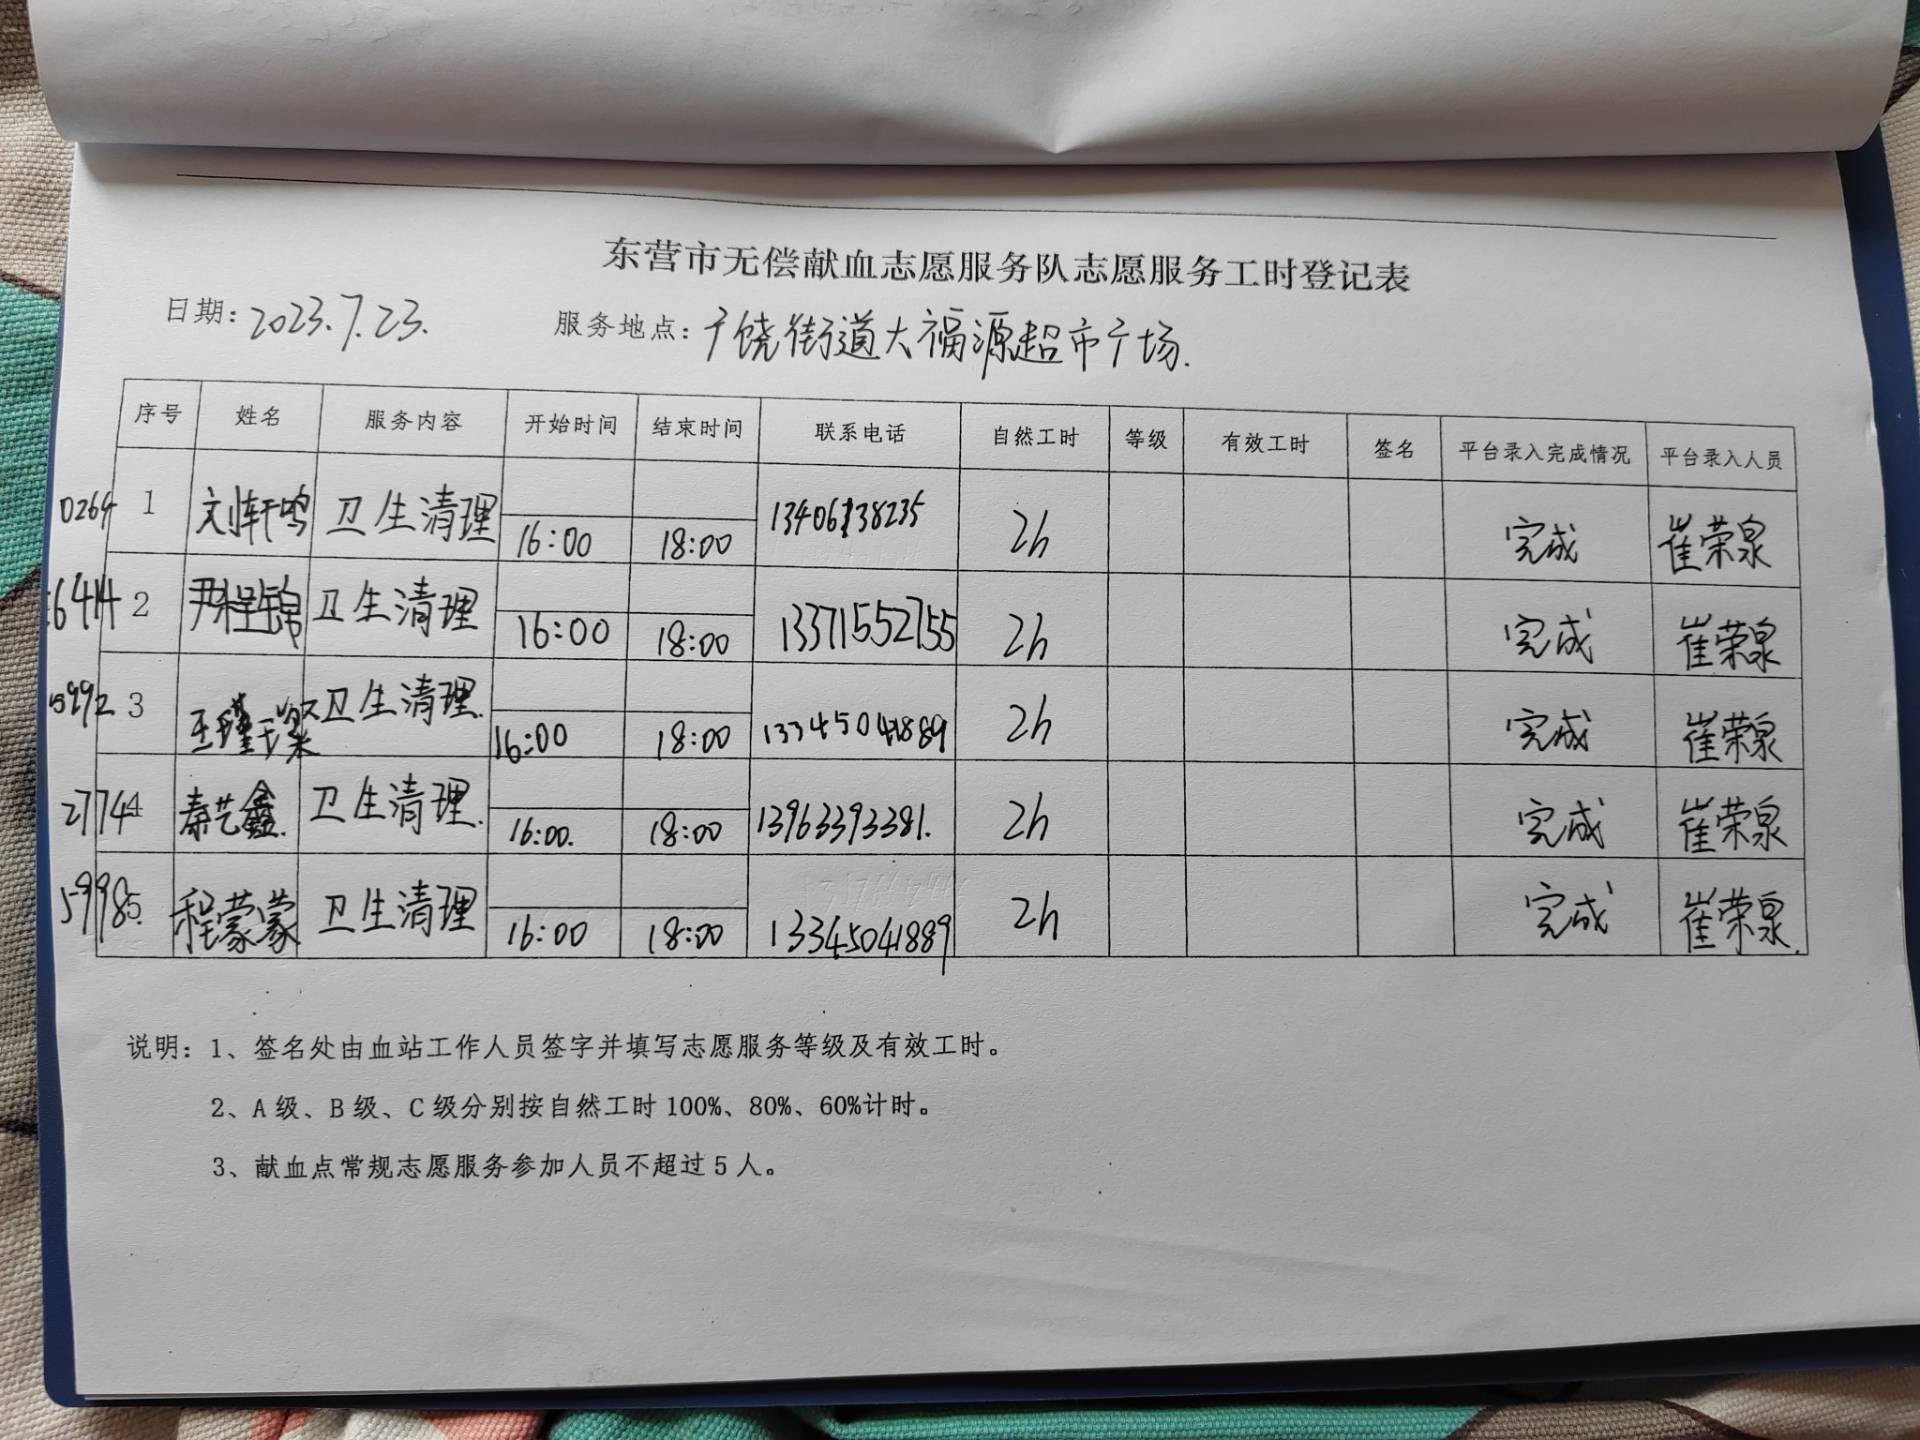 东营市无偿献血志愿服务队志愿服务工时登记表
日期：2023.7.23. 服务地点：广饶街道大福源超市广场.
序号 姓名 服务内容 开始时间 结束时间 联系电话 自然工时 等级 有效工时 签名 平台录入完成情况 平台录入人员
0264 1 刘轩鸣 卫生清理 16:00 18:00 13406138235 2h 完成 崔荣泉
6414 2 尹程锦 卫生清理 16:00 18:00 13371552755 2h 完成 崔荣泉
5992 3 王瑾璨 卫生清理. 16:00 18:00 13345041889 2h 完成 崔荣泉
2774 4 秦艺鑫. 卫生清理. 16:00. 18:00 13963393381. 2h 完成 崔荣泉
5998 5 程蒙蒙 卫生清理 16:00 18:00 13345041889 2h 完成 崔荣泉.
说明：1、签名处由血站工作人员签字并填写志愿服务等级及有效工时。
2、A级、B级、C级分别按自然工时100%、80%、60%计时。
3、献血点常规志愿服务参加人员不超过5人。